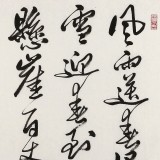 風雨送春歸
雪迎春到
懸崖百丈